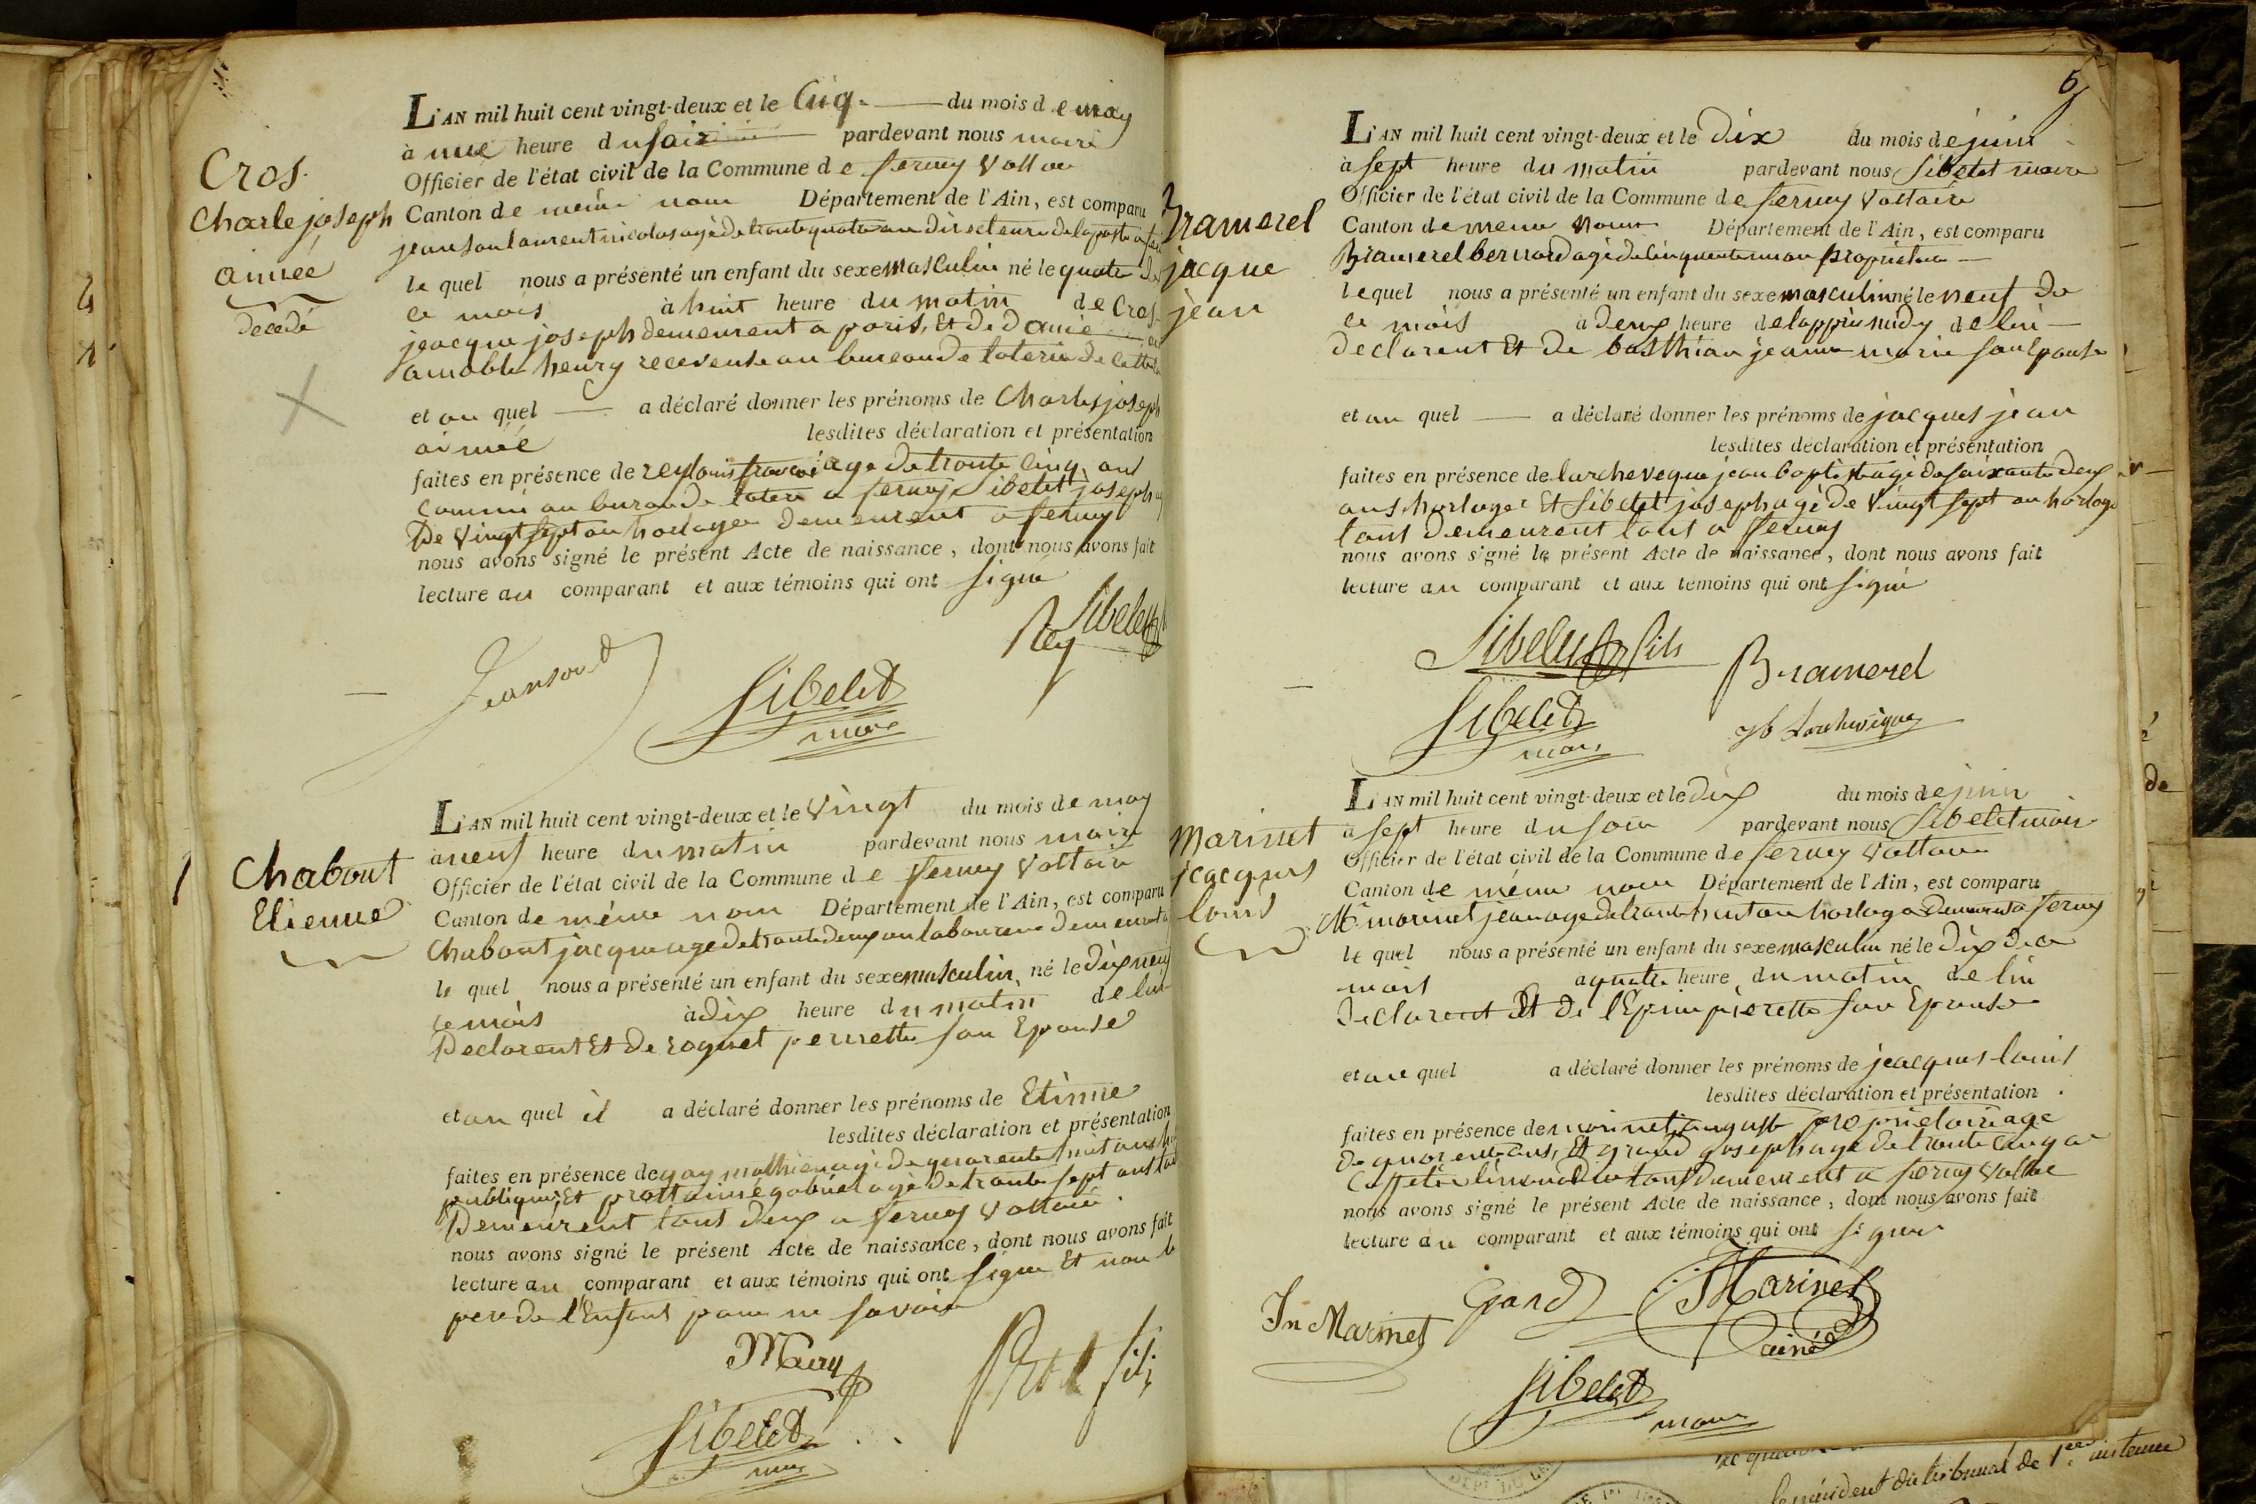 Cros.
Charle joseph
aimée
décédé
L'AN mil huit cent vingt-deux et le Cinq. du mois de may
à une heure du soir pardevant nous maire
Officier de l'état civil de la Commune de fernex Voltaire
Canton de même nom Département de l'Ain, est comparu
jean laurent nicolas agé de trente quatre an directeure de la poste
le quel nous a présenté un enfant du sexe masculin né le quatre de
ce mois à huit heure du matin de Cros
jeacque joseph demeurent a paris, Et de Damie
amable henry receveuse au bureau de loterie de cette
et au quel a déclaré donner les prénoms de Charles joseph
aimée lesdites déclaration et présentation
faites en présence de rey louis françois age de trente cinq ans
commi au burau de loterie a ferney Sibelet joseph
De vingt sept an horloger demeurent a ferney
nous avons signé le présent Acte de naissance, dont nous avons fait
lecture au comparant et aux témoins qui ont signé
Sibelet
Rey
Sibelet
maire
Chabout
Etienne
L'AN mil huit cent vingt-deux et le Vingt du mois de may
à neuf heure du matin pardevant nous maire
Officier de l'état civil de la Commune de ferney Voltaire
Canton de même nom Département de l'Ain, est comparu
Chabout jacque age de trante deux an laboureur demeurent a
le quel nous a présenté un enfant du sexe masculin né le dix neuf
ce mois à dix heure du matin de lui
Declarent Et de roguet pernette son Epouse
et au quel il a déclaré donner les prénoms de Etienne
lesdites déclaration et présentation
faites en présence de gay mathieu agé de quarente huit ans
publique, Et prost aimé gabriel age de trante sept ans
Demeurent tous deux a ferney Voltaire
nous avons signé le présent Acte de naissance, dont nous avons fait
lecture au comparant et aux témoins qui ont signé Et non le
pere de l'Enfant pour ne savoir
Prost fils
Sibelet
maire
5
Bramerel
jacque
jean
L'AN mil huit cent vingt-deux et le Dix du mois de juin
à sept heure du matin pardevant nous Sibelet maire
Officier de l'état civil de la Commune de ferney Voltaire
Canton de meme nom Département de l'Ain, est comparu
Bramerel bernard agé de Cinquente un an propriétaire
le quel nous a présenté un enfant du sexe masculin né le neuf du
ce mois à deux heure de lapprès midy de lui
declarent Et de basthian jeanne marie son Epouse
et au quel a déclaré donner les prénoms de jacques jean
lesdites déclaration et présentation
faites en présence de larcheveque jean baptiste agé de soixante deux
ans horloger Et Sibelet joseph agé de Vingt sept an horloger
tous demeurent tous a ferney
nous avons signé le présent Acte de naissance, dont nous avons fait
lecture au comparant et aux témoins qui ont signé
Sibelet fils
Bramerel
Sibelet
maire
Jb Larchevêque
Marinet
jeacques
louis
L'AN mil huit cent vingt-deux et le dix du mois de juin
à sept heure du soir pardevant nous Sibelet maire
Officier de l'état civil de la Commune de ferney Voltaire
Canton de méme nom Département de l'Ain, est comparu
marinet jean age de trante huit an horloger Demeurent a ferney
le quel nous a présenté un enfant du sexe masculin né le dix de ce
mois a quatre heure du matin de lui
Declarent Et de l'Epine pierrette son Epouse
et au quel a déclaré donner les prénoms de jeacques louis
lesdites déclaration et présentation
faites en présence de marinet auguste propriétaire age
de quarente ans, Et grand joseph age de trante cinq an
Caffetier limonadier tous demeurent a ferney Voltaire
nous avons signé le présent Acte de naissance, dont nous avons fait
lecture au comparant et aux témoins qui ont signé
Jn Marinet
Grand
Marinet
ainé
Sibelet
maire
de
le président du tribunal de 1ère instance